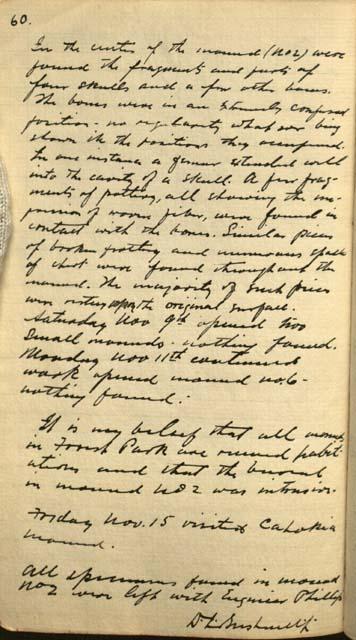 60.
In the center of the mound (No2) were
found the fragments and parts of
four skulls and a few other bones.
The bones were in an extremely confused
position - no regularity whatsoever being
shown in the positions they occupied.
In one instance a femur extended well
into the cavity of a skull. A few frag-
ments of pottery, all showing the im-
pression of woven fiber, were found in
contact with the bones. Similar pieces
of broken pottery and numerous spalls
of chert were found throughout the
mound. The majority of such pieces
were resting upon the original surface.
Saturday Nov 9th opened two
small mounds - nothing found.
Monday Nov 11th continued
work opened mound no. 6 -
nothing found.
It is my belief that all mounds
in Forest Park are ruined habit-
ations and that the burial
in mound No 2 was intrusive.
Friday Nov. 15 visited Cahokia
mound.
All specimens found in mound
No2 were left with Engineer Phillips
D.I. Bushnell Jr